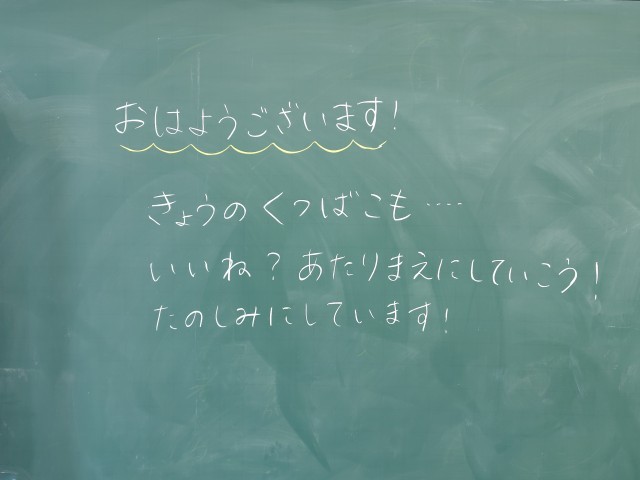 おはようございます!
きょうのくつばこも‥‥
いいね?あたりまえにしていこう!
たのしみにしています!